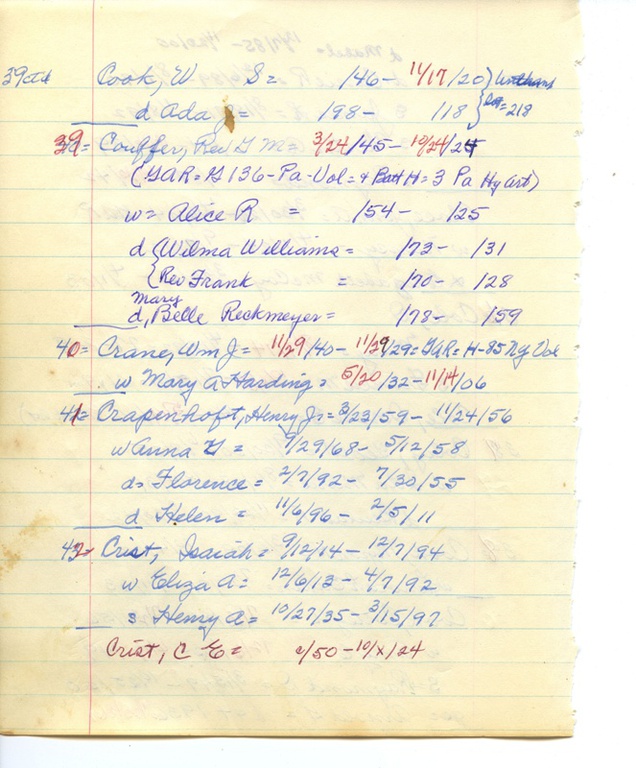 39
Cook, W S = /46- 11/17/20
d Ada J = /98- /18 = 218
39 = Couffer, Rev G M = 3/24/45 - 10/24/24
(GAR = G 136-Pa-Vol = + Batt H = 3 Pa Hy Art)
w = Alice R = /54- /25
d Wilma Williams = /73- /31
Rev Frank = /70- /28
Mary
d, Belle Reckmeyer = /78- /59
40 = Crane, Wm J = 11/29/40- 11/29/29 = GAR = H-85 Ny Vol
w Mary A Harding = 5/20/32-11/14/06
41 = Crapenhoft, Henry J = 3/23/59 - 11/24/56
w Anna = 9/29/68- 5/12/58
d = Florence = 2/7/92- 7/30/55
d Helen = 11/6/96 - 2/5/11
42 = Crist, Isaiah = 9/12/14 - 12/7/94
w Eliza A = 12/6/13 - 4/7/92
s Henry A = 10/27/35 - 3/15/97
Crist, C E = c/50 - 10/x/24